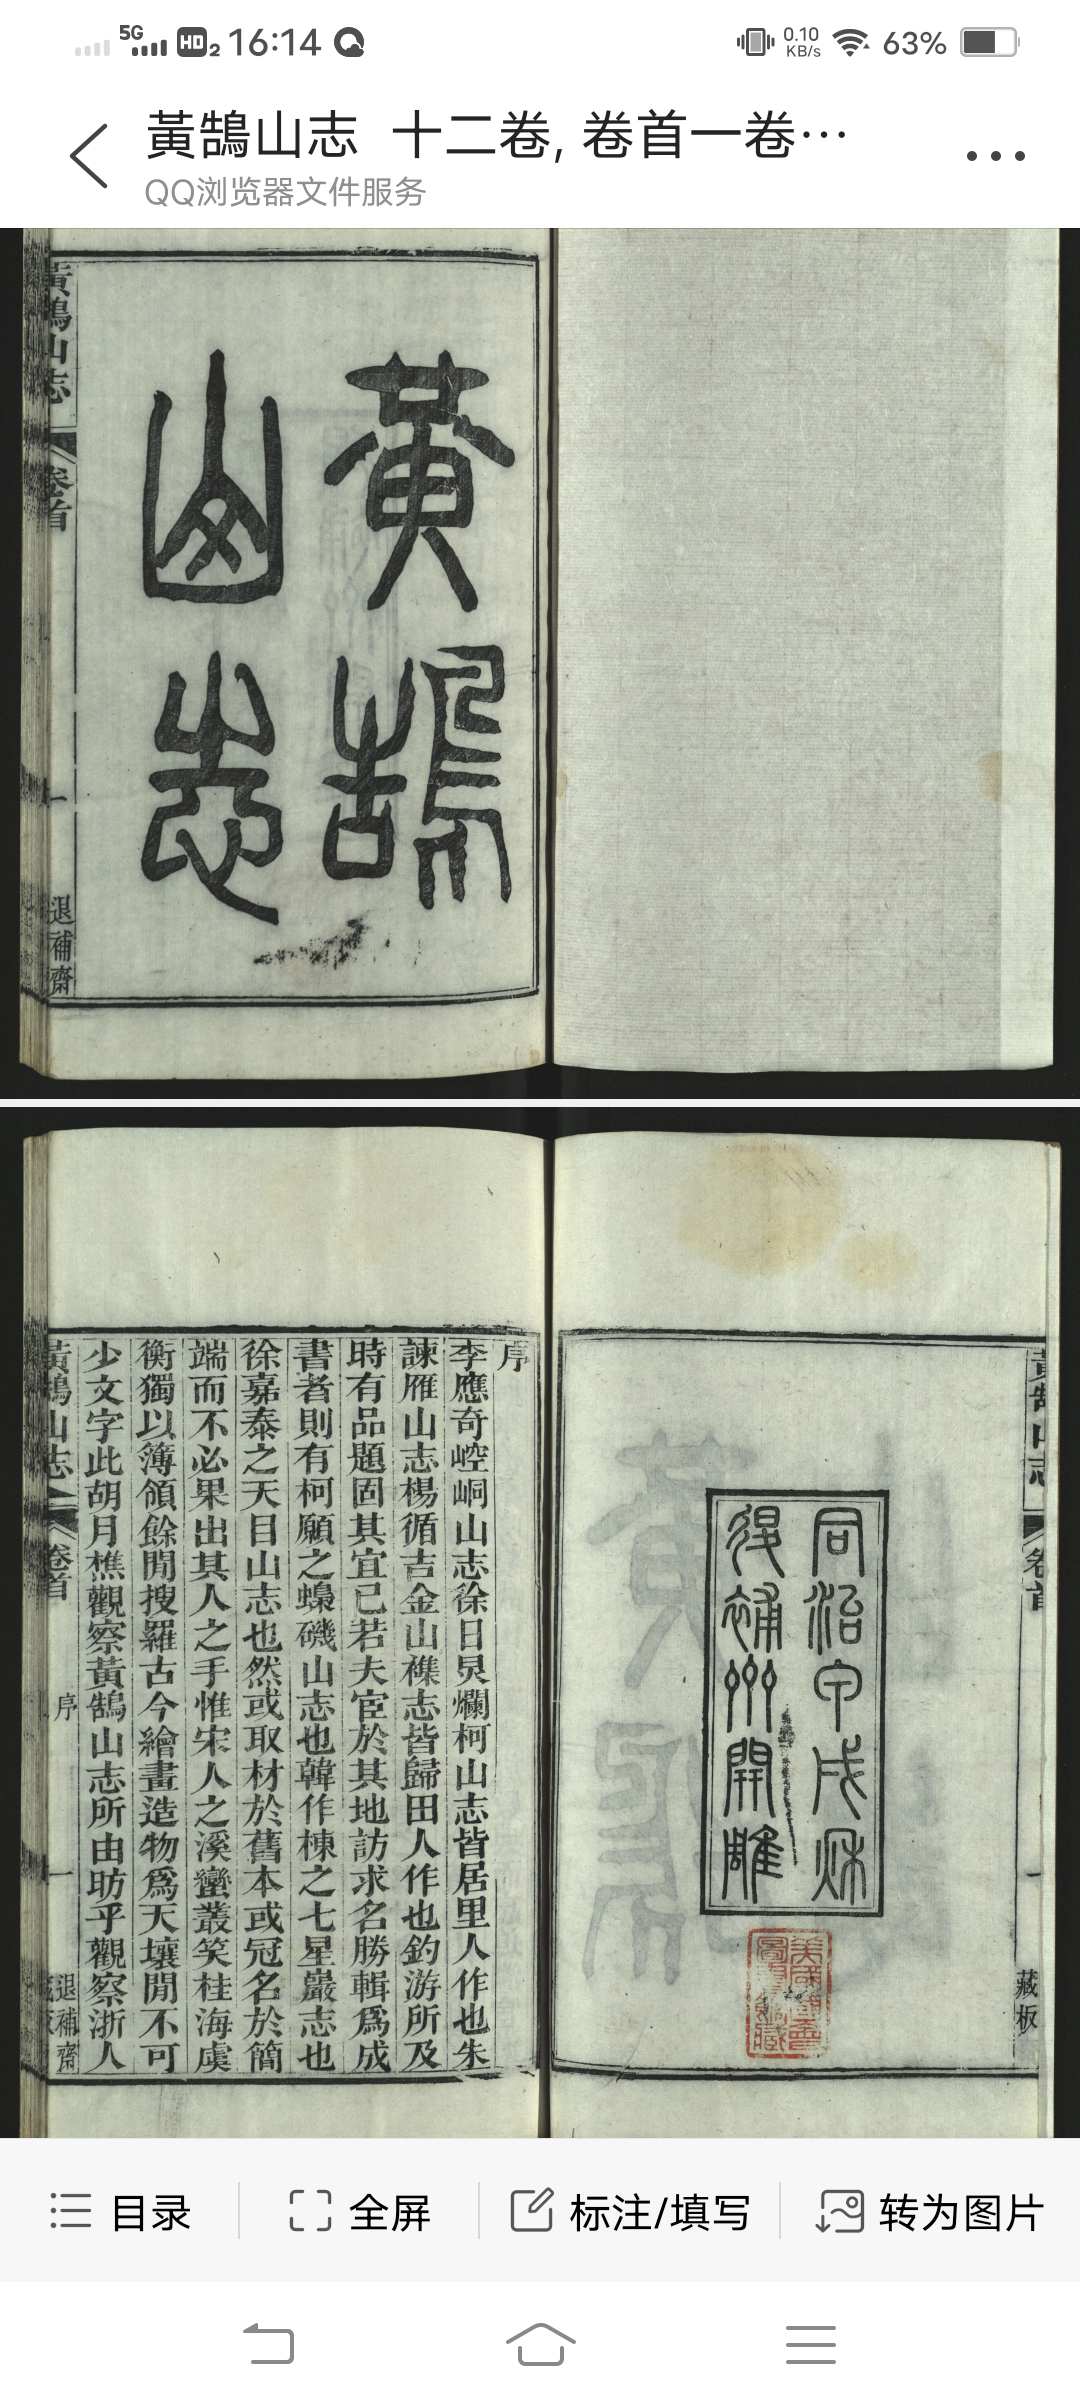 5G HD 2 16:14 0.10 KB/s 63%
黃鵠山志 十二卷, 卷首一卷…
QQ浏览器文件服务
黃鵠
山志
黃鵠山志
卷首
一
退補齋
同治甲戌秌
退補齋開雕
黃鵠山志
卷首
一
藏板
序
李應奇崆峒山志徐日炅爛柯山志皆居里人作也朱
諫雁山志楊循吉金山襍志皆歸田人作也釣游所及
時有品題固其宜已若夫宦於其地訪求名勝輯爲成
書者則有柯願之蟂磯山志也韓作棟之七星巖志也
徐嘉泰之天目山志也然或取材於舊本或冠名於簡
端而不必果出其人之手惟宋人之溪蠻叢笑桂海虞
衡獨以簿領餘閒搜羅古今繪畫造物爲天壤閒不可
少文字此胡月樵觀察黃鵠山志所由昉乎觀察浙人
黃鵠山志
卷首
序
一
退補齋
目录
全屏
标注/填写
转为图片